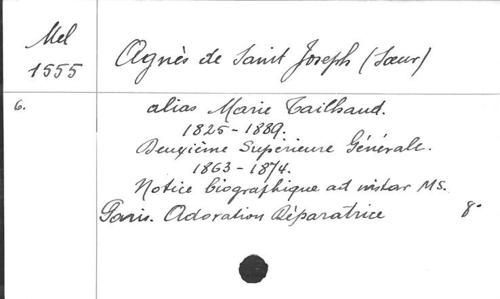 Mel
1555
Agnès de Saint Joseph (Sœur)
6.
alias Marie Tailhaud.
1825-1889.
Deuxième Supérieure Générale.
1863-1874.
Notice biographique ad instar MS.
Paris. Adoration Réparatrice 8°